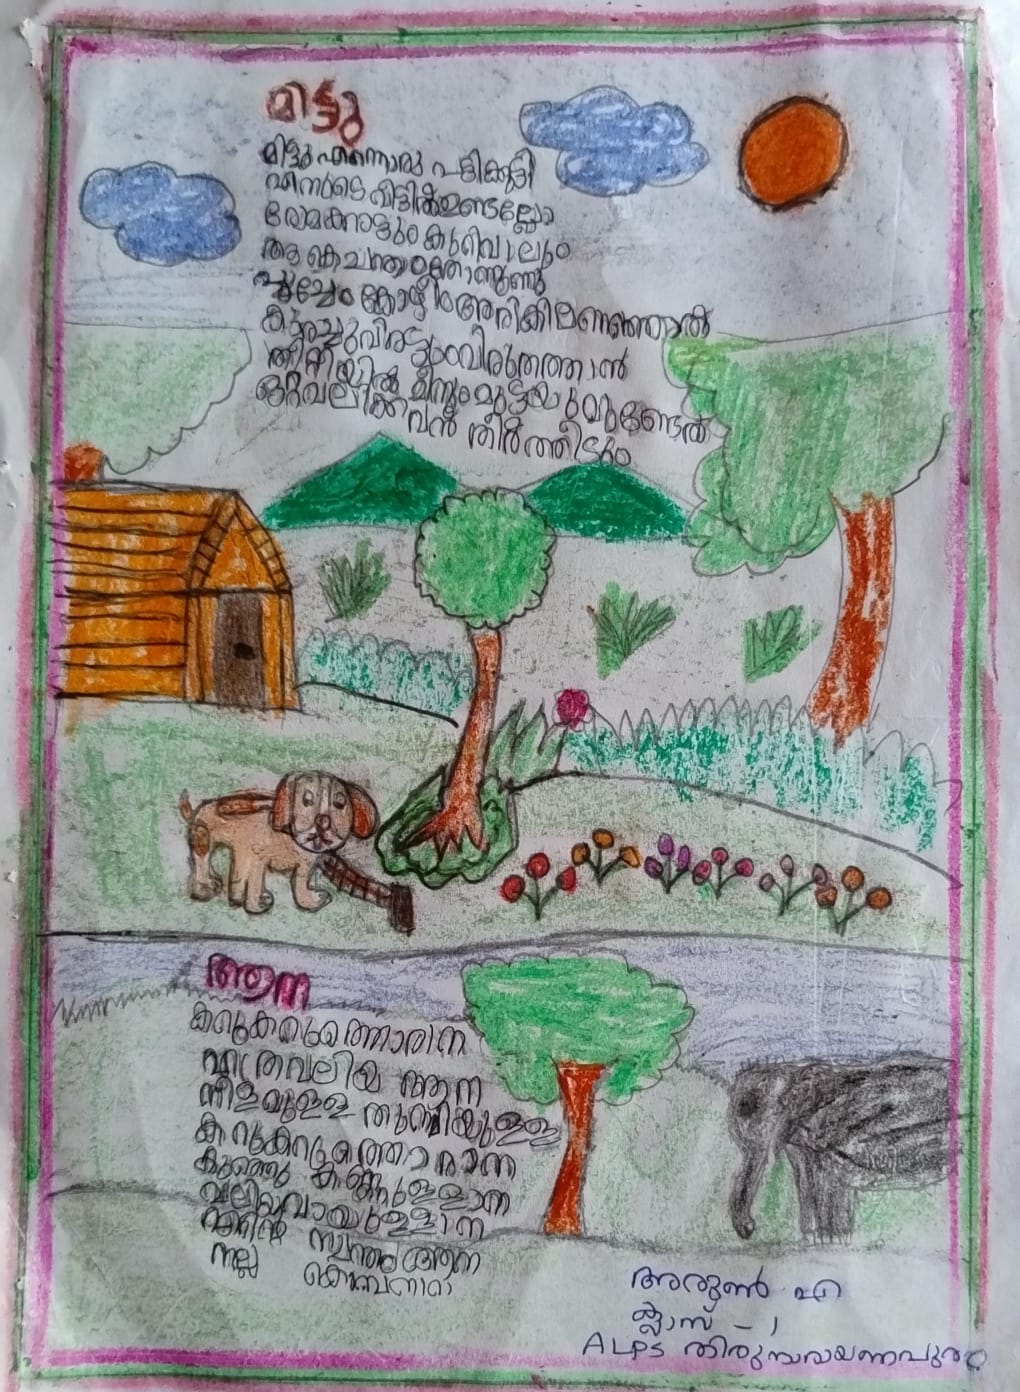 മിട്ടു
മിട്ടു എന്നൊരു പട്ടിക്കുട്ടി
എന്നുടെ വീട്ടിൽ ഉണ്ടല്ലോ
രോമക്കാടും കുഴിവാലും
ആകെ ചന്തം തോന്നുന്നു
പൂച്ചേം കോഴീം അരികിലണഞ്ഞാൽ
കുരച്ചു വിരട്ടും വിരുതത്താൻ
തീനിയിൽ മീനും മുട്ടയുമുണ്ടേൽ
ഒറ്റവലിക്കവൻ തീർത്തിടും
ആന
കറുകറുത്തൊരാന
എത്രവലിയ ആന
നീളമുള്ള തുമ്പിയുള്ള
കറുകറുത്തൊരാന
കുഞ്ഞു കണ്ണുള്ളാന
വലിയവായുള്ളാന
എന്റെ സ്വന്തം ആന
നല്ല കൊമ്പനാന
അരുൺ എ
ക്ലാസ് - 1
ALPS തിരുനാരായണപുരം